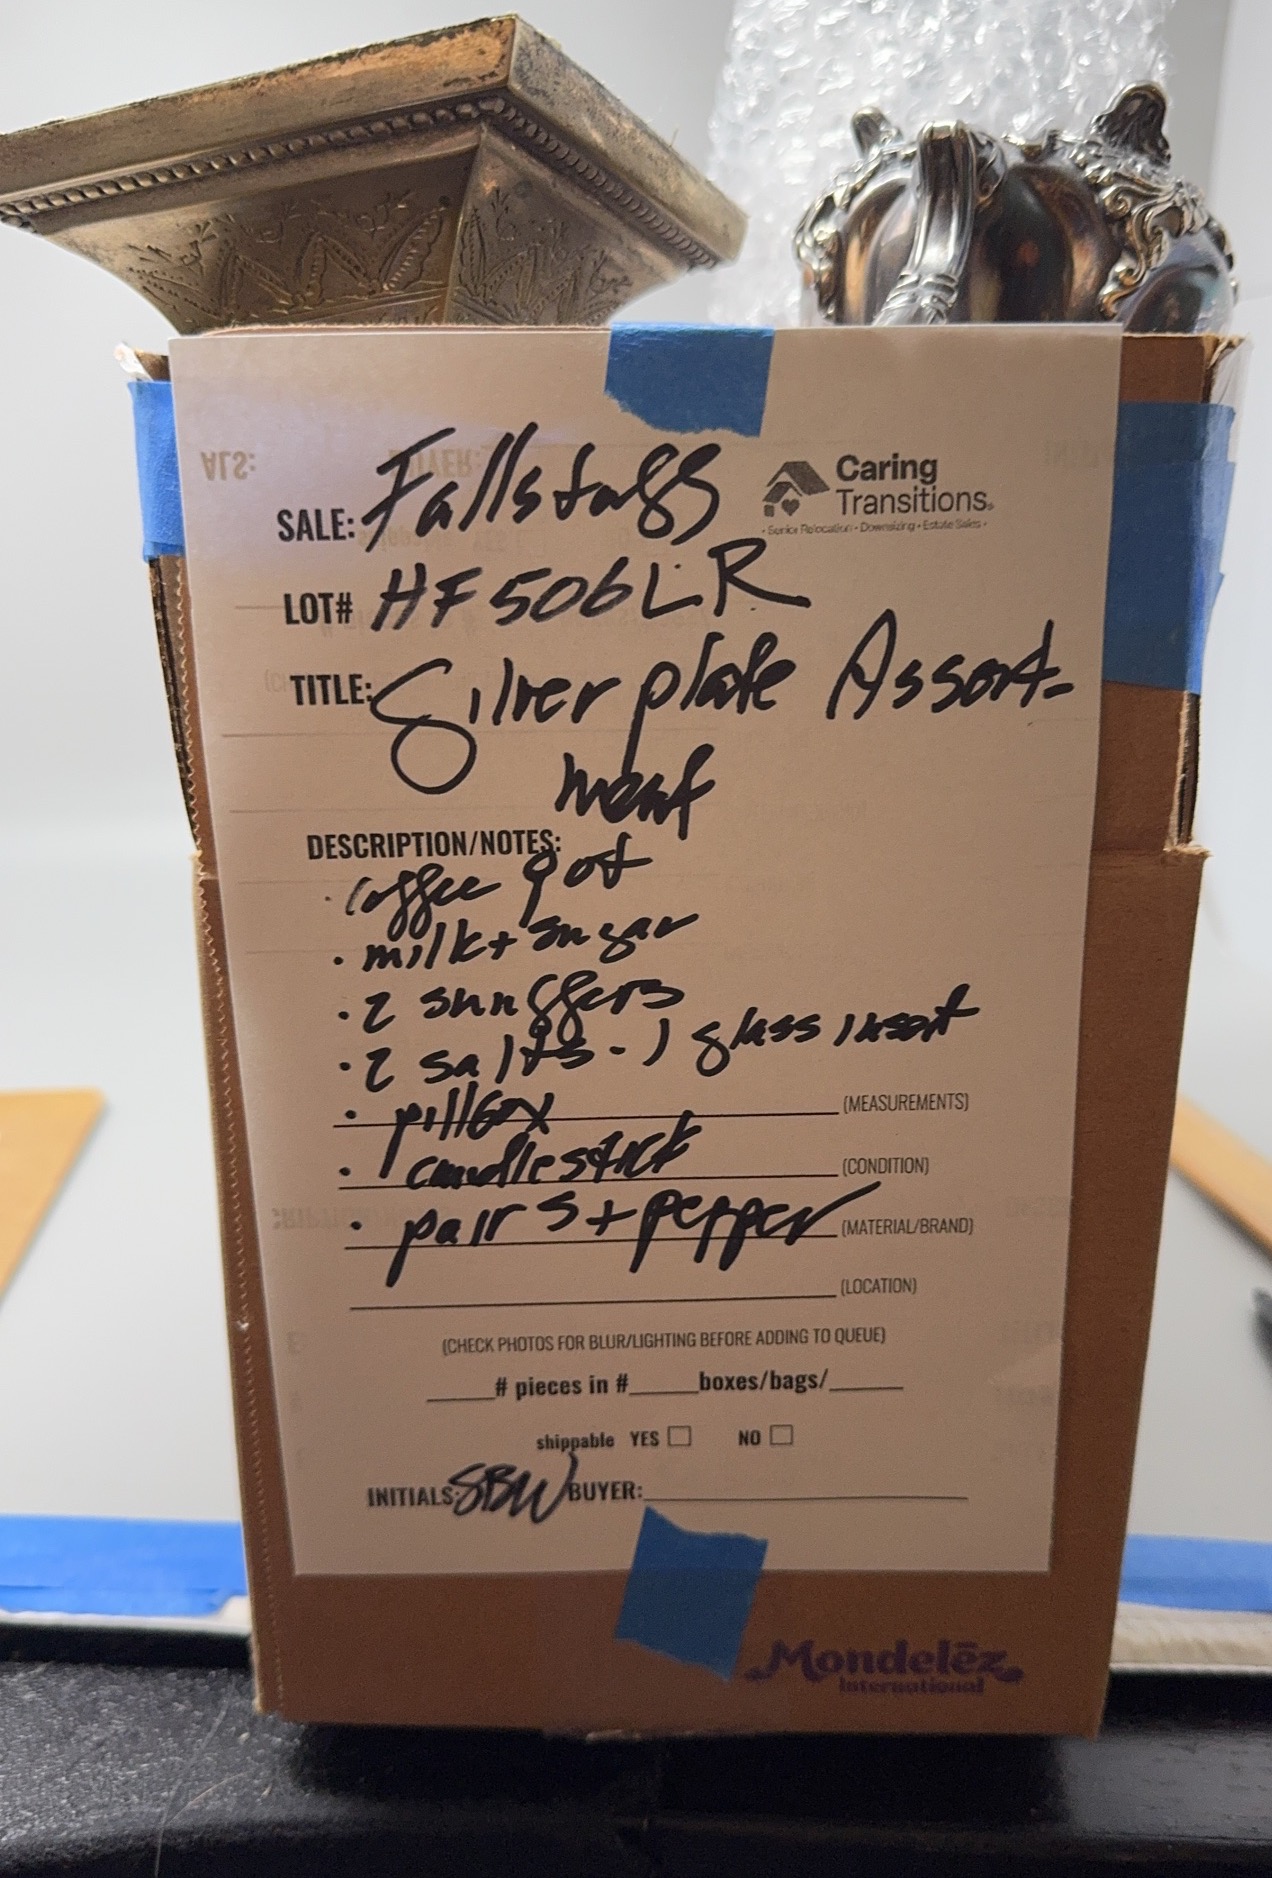 Caring
Transitions.
• Senior Relocation • Downsizing • Estate Sales •
SALE: Fallstaff
LOT# HF506LR
TITLE: Silverplate Assort-
ment
DESCRIPTION/NOTES:
• coffee pot
• milk + sugar
• 2 snuffers
• 2 salts - 1 glass insert
• pillbox (MEASUREMENTS)
• 1 candlestick (CONDITION)
• pair s + pepper (MATERIAL/BRAND)
(LOCATION)
(CHECK PHOTOS FOR BLUR/LIGHTING BEFORE ADDING TO QUEUE)
_____# pieces in #_____boxes/bags/_____
shippable YES □ NO □
INITIALS: SBW BUYER:
Mondelēz
International